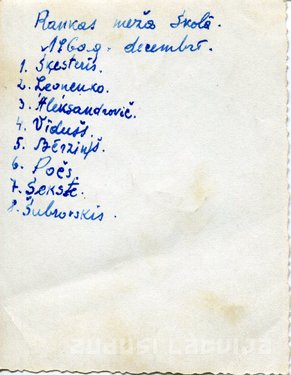 Rankas meža skolā.
1960.g. decembrī.
1. Šķesteris.
2. Leonenko.
3. Aleksandrovič.
4. Vidušs.
5. Bērziņš.
6. Počs.
7. Šekste.
8. Šubrovskis.
ZUDUSI LATVIJA